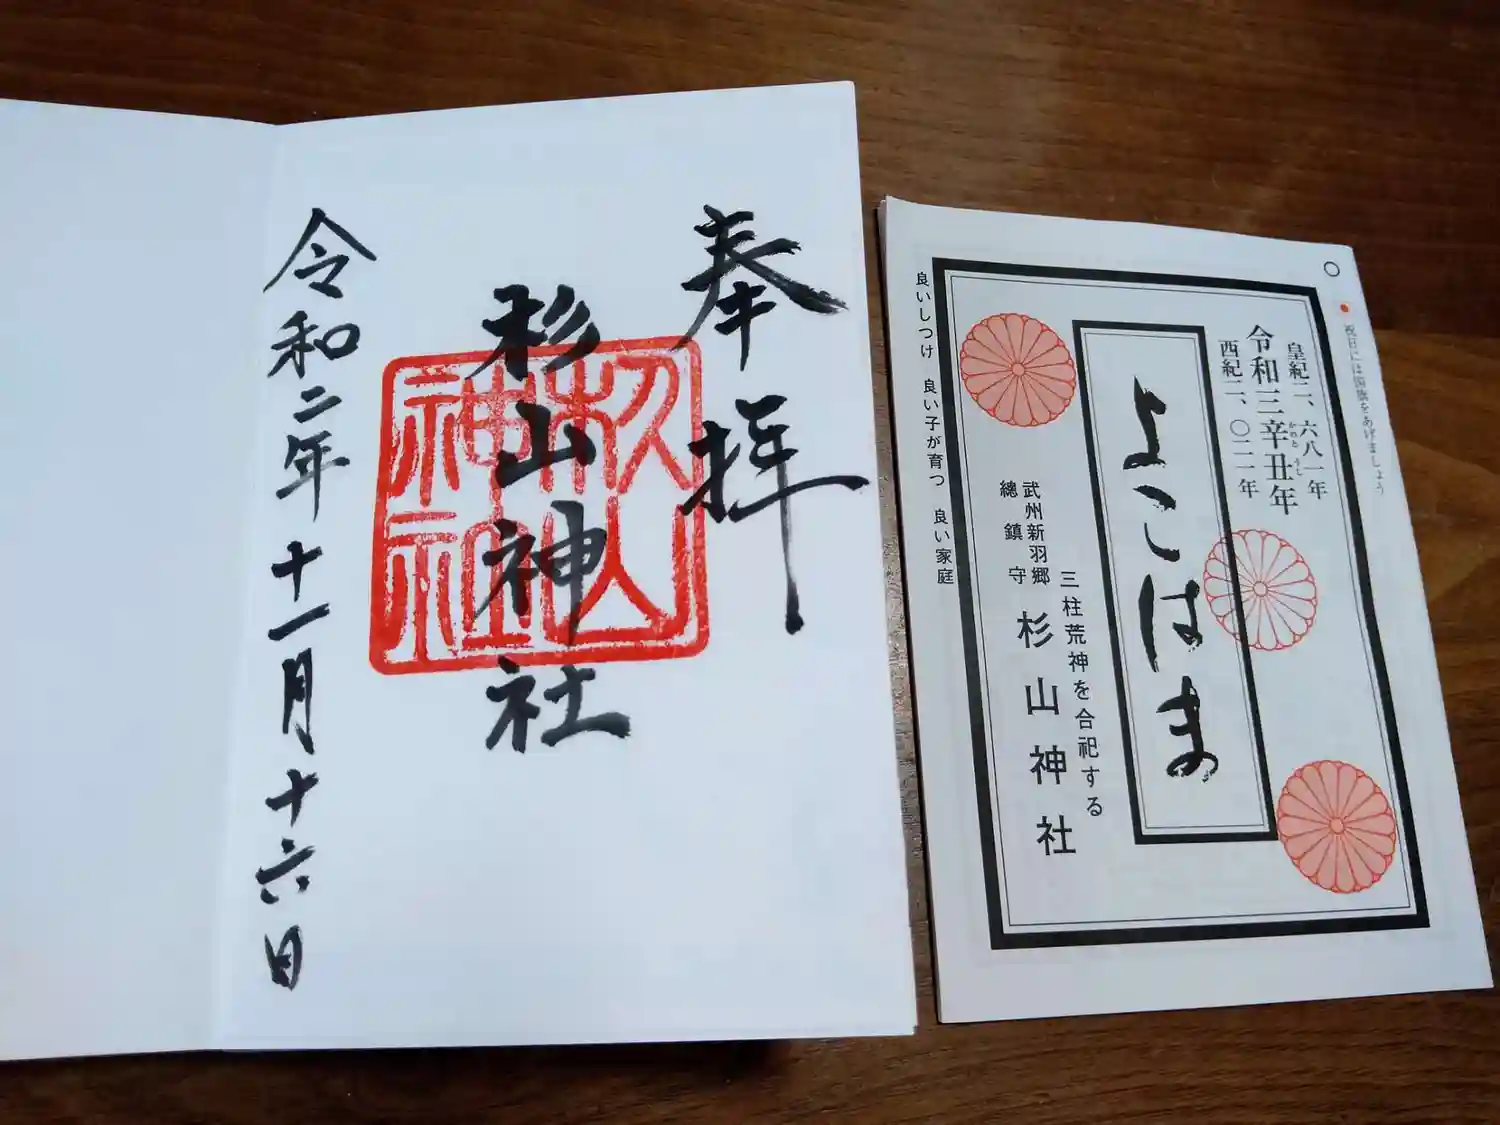 奉拝
杉山神社
杉山
神社
令和二年十一月十六日
祝日には国旗をあげましょう
皇紀二、六八一年
令和三辛丑年
かのと うし
西紀二、〇二一年
よこはま
三柱荒神を合祀する
武州新羽郷
總鎮守
杉山神社
良いしつけ 良い子が育つ 良い家庭